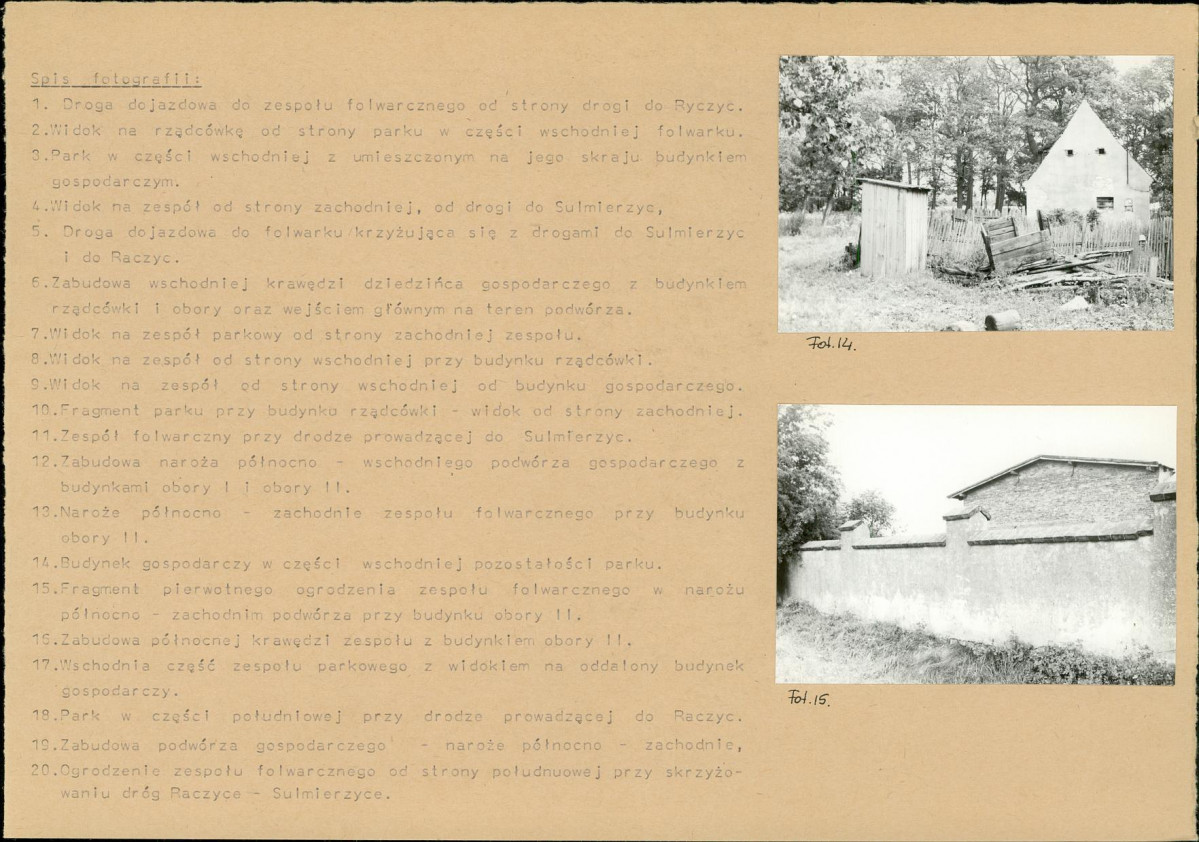 Spis fotografii:
1. Droga dojazdowa do zespołu folwarcznego od strony drogi do Ryczyc.
2.Widok na rządcówkę od strony parku w części wschodniej folwarku.
3.Park w części wschodniej z umieszczonym na jego skraju budynkiem
gospodarczym.
4.Widok na zespół od strony zachodniej, od drogi do Sulmierzyc,
5. Droga dojazdowa do folwarku krzyżująca się z drogami do Sulmierzyc
i do Raczyc.
6.Zabudowa wschodniej krawędzi dziedzińca gospodarczego z budynkiem
rządcówki i obory oraz wejściem głównym na teren podwórza.
7.Widok na zespół parkowy od strony zachodniej zespołu.
8.Widok na zespół od strony wschodniej przy budynku rządcówki.
9.Widok na zespół od strony wschodniej od budynku gospodarczego.
10.Fragment parku przy budynku rządcówki - widok od strony zachodniej.
11.Zespół folwarczny przy drodze prowadzącej do Sulmierzyc.
12.Zabudowa naroża północno - wschodniego podwórza gospodarczego z
budynkami obory I i obory II.
13.Naroże północno - zachodnie zespołu folwarcznego przy budynku
obory II.
14.Budynek gospodarczy w części wschodniej pozostałości parku.
15.Fragment pierwotnego ogrodzenia zespołu folwarcznego w narożu
północno - zachodnim podwórza przy budynku obory II.
16.Zabudowa północnej krawędzi zespołu z budynkiem obory II.
17.Wschodnia część zespołu parkowego z widokiem na oddalony budynek
gospodarczy.
18.Park w części południowej przy drodze prowadzącej do Raczyc.
19.Zabudowa podwórza gospodarczego - naroże północno - zachodnie,
20.Ogrodzenie zespołu folwarcznego od strony połudnuowej przy skrzyżo-
waniu dróg Raczyce - Sulmierzyce.
Fot.14.
Fot.15.